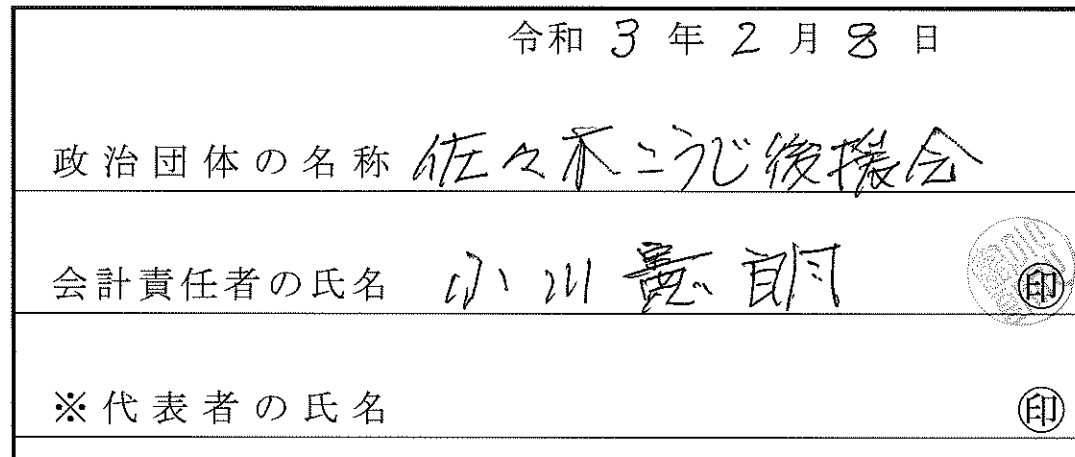 令和 3 年 2 月 8 日
政治団体の名称 佐々木こうじ後援会
会計責任者の氏名 小川憲朗 ㊞
※代表者の氏名 ㊞